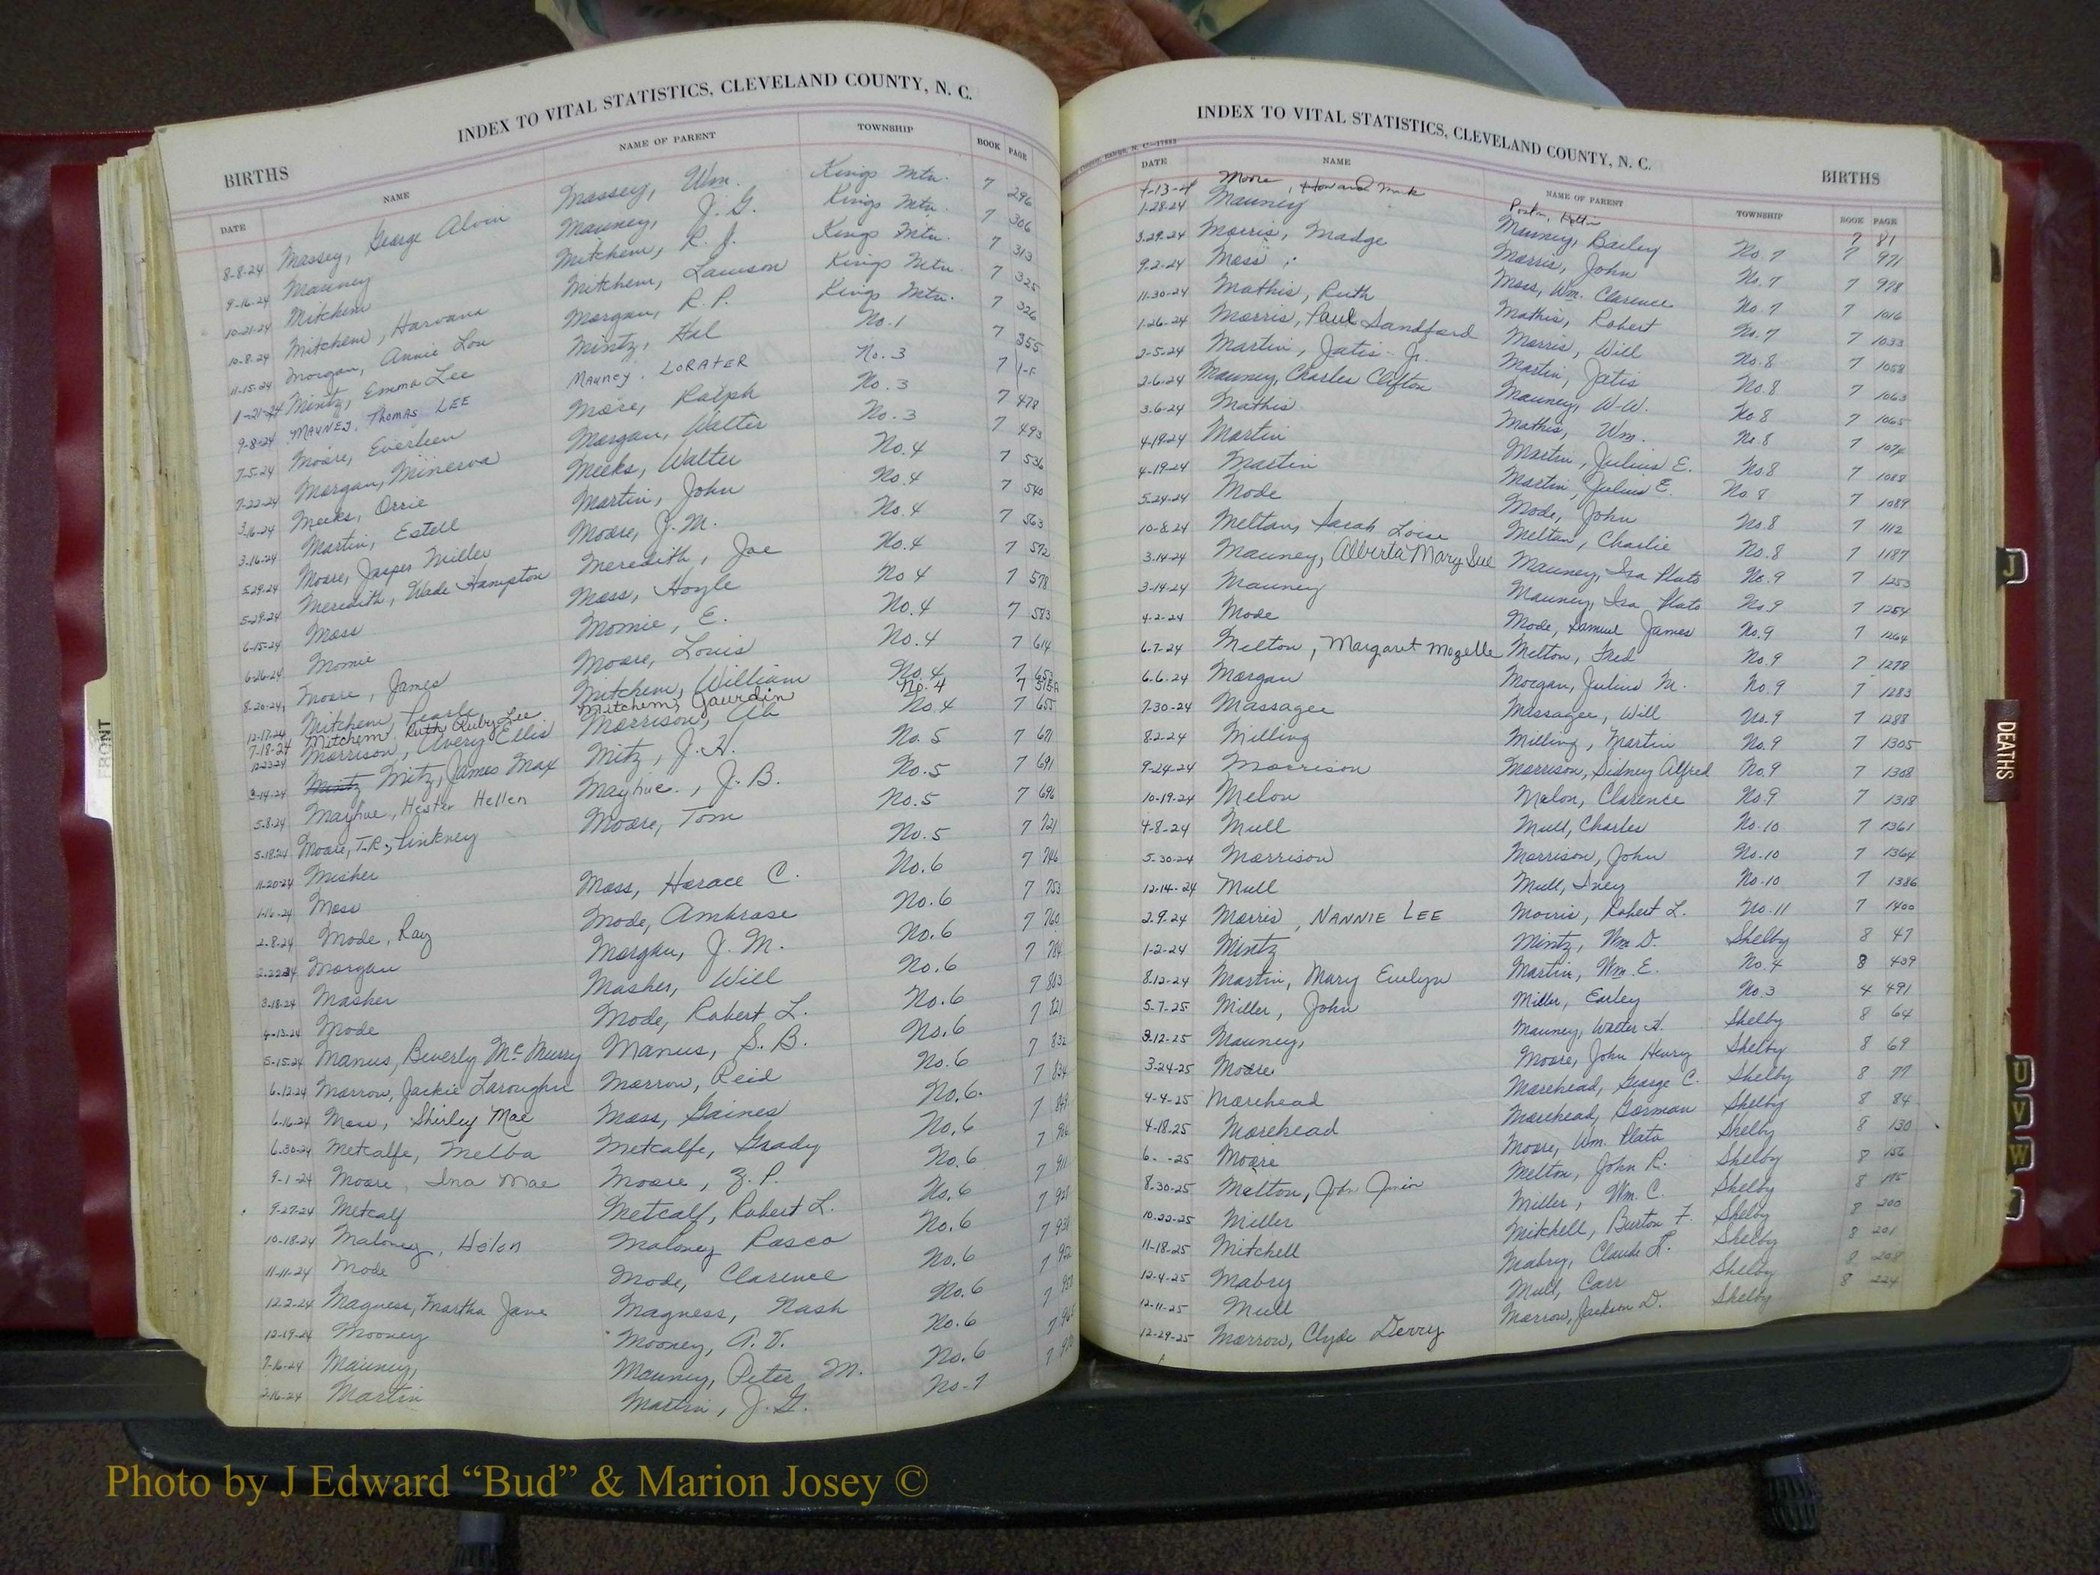 INDEX TO VITAL STATISTICS, CLEVELAND COUNTY, N. C.
BIRTHS
DATE NAME NAME OF PARENT TOWNSHIP BOOK PAGE
8-8-24 Massey, George Alvin Massey, Wm. Kings Mtn. 7 296
9-16-24 Mauney Mauney, J. G. Kings Mtn. 7 306
10-21-24 Mitchem Mitchem, R. J. Kings Mtn. 7 313
10-8-24 Mitchem, Harvana Mitchem, Lawson Kings Mtn. 7 325
11-15-24 Morgan, Annie Lou Morgan, R. P. Kings Mtn. 7 326
1-21-24 Mintz, Emma Lee Mintz, Hal No. 1 7 355
9-8-24 MAUNEY, THOMAS LEE MAUNEY, LORATER No. 3 7 1-F
7-5-24 Moore, Everleen Moore, Ralph No. 3 7 478
7-22-24 Morgan, Minerva Morgan, Walter No. 3 7 493
3-16-24 Meeks, Orrie Meeks, Walter No. 4 7 536
3-16-24 Martin, Estell Martin, John No. 4 7 540
5-29-24 Moore, Jasper Miller Moore, J. M. No. 4 7 563
5-29-24 Meredith, Wade Hampton Meredith, Joe No. 4 7 572
6-15-24 Moss Moss, Hoyle No 4 7 578
6-26-24 Momie Momie, E. No. 4 7 583
8-20-24 Moore, James Moore, Louis No. 4 7 614
12-17-24 Mitchem, Pearle Mitchem, William No. 4 7 653
7-18-24 Mitchem, Ruth Ruby Lee Mitchem, Jaurdin No. 4 7
12-23-24 Morrison, Avery Ellis Morrison, Ab No. 4 7 655
3-14-24 Mitz, James Max Mitz, J. H. No. 5 7 671
5-8-24 Mayhue, Hester Hellen Mayhue, J. B. No. 5 7 691
5-18-24 Moore, T.R., Pinkney Moore, Tom No. 5 7 696
11-20-24 Misher No. 5 7 721
1-16-24 Moss Moss, Horace C. No. 6 7 746
2-8-24 Mode, Ray Mode, Ambrose No. 6 7 753
2-22-24 Morgan Morgan, J. M. No. 6 7 760
3-18-24 Masher Masher, Will No. 6 7 784
4-13-24 Mode Mode, Robert L. No. 6 7 803
5-15-24 Manus, Beverly McMurry Manus, S. B. No. 6 7 821
6-12-24 Morrow, Jackie Laroughn Morrow, Reid No. 6 7 832
6-16-24 Moss, Shirley Mae Moss, Gaines No. 6. 7 834
6-30-24 Metcalfe, Melba Metcalfe, Grady No. 6 7
9-1-24 Moore, Ina Mae Moore, Z. P. No. 6 7
9-27-24 Metcalf Metcalf, Robert L. No. 6 7 911
10-18-24 Maloney, Helen Maloney Rasco No. 6 7
11-11-24 Mode Mode, Clarence No. 6 7
12-2-24 Magness, Martha Jane Magness, Nash No. 6 7
12-19-24 Mooney Mooney, A. V. No. 6 7
7-16-24 Mauney, Mauney, Peter M. No. 6 7
2-16-24 Martin Martin, J. G. No. 7 7
INDEX TO VITAL STATISTICS, CLEVELAND COUNTY, N. C.
BIRTHS
DATE NAME NAME OF PARENT TOWNSHIP BOOK PAGE
Moore, Howard Poston, 7 81
1-28-24 Mauney Mauney, Bailey No. 7 7 971
3-29-24 Morris, Madge Morris, John No. 7 7 978
9-2-24 Moss Moss, Wm. Clarence No 7 7 1016
11-30-24 Mathis, Ruth Mathis, Robert No. 7 7 1033
1-26-24 Morris, Paul Sandford Morris, Will No. 8 7 1058
2-5-24 Martin, Jatis Jr. Martin, Jatis No. 8 7 1063
2-6-24 Mauney, Charles Clifton Mauney, W. W. No. 8 7 1065
3-6-24 Mathis Mathis, Wm. No 8 7 1074
4-19-24 Martin Martin, Julius E. No. 8 7 1088
4-19-24 Martin Martin, Julius E. No. 8 7 1089
5-24-24 Mode Mode, John No. 8 7 1112
10-8-24 Melton, Sarah Loise Melton, Charlie No. 8 7 1187
3-14-24 Mauney, Alberta Mary Sue Mauney, Isa Plato No. 9 7 1253
3-14-24 Mauney Mauney, Isa Plato No. 9 7 1254
4-2-24 Mode Mode, Samuel James No. 9 7 1264
6-7-24 Melton, Margaret Mozelle Melton, Fred No. 9 7 1278
6-6-24 Morgan Morgan, Julius M. No. 9 7 1283
7-30-24 Massagee Massagee, Will No. 9 7 1288
8-2-24 Milling Milling, Martin No. 9 7 1305
9-24-24 Morrison Morrison, Sidney Alfred No. 9 7 1308
10-19-24 Melon Malon, Clarence No. 9 7 1318
4-8-24 Mull Mull, Charles No. 10 7 1361
5-30-24 Morrison Morrison, John No. 10 7 1364
12-14-24 Mull Mull, Ivey No. 10 7 1386
2-9-24 Morris, NANNIE LEE Morris, Robert L. No. 11 7 1400
1-2-24 Mintz Mintz, Wm D. Shelby 8 47
8-12-24 Martin, Mary Evelyn Martin, Wm. E. No. 4 8 409
5-7-25 Miller, John Miller, Earley No. 3 4 491
3-12-25 Mauney, Mauney, Walter H. Shelby 8 64
3-24-25 Moore Moore, John Henry Shelby 8 69
4-4-25 Morehead Morehead, George C. Shelby 8 77
4-18-25 Morehead Morehead, Gorman Shelby 8 84
6- -25 Moore Moore, Wm. Plato Shelby 8 130
8-30-25 Melton, John Junior Melton, John R. Shelby 8 156
10-22-25 Miller Miller, Wm. C. Shelby 8 195
11-18-25 Mitchell Mitchell, Burton F. Shelby 8 200
12-4-25 Mabry Mabry, Claude L. Shelby 8 201
12-11-25 Mull Mull, Carr Shelby 8 208
12-29-25 Morrow, Clyde Derry Morrow, Jackson D. Shelby 8 224
FRONT
J
DEATHS
U
V
W
Photo by J Edward “Bud” & Marion Josey ©